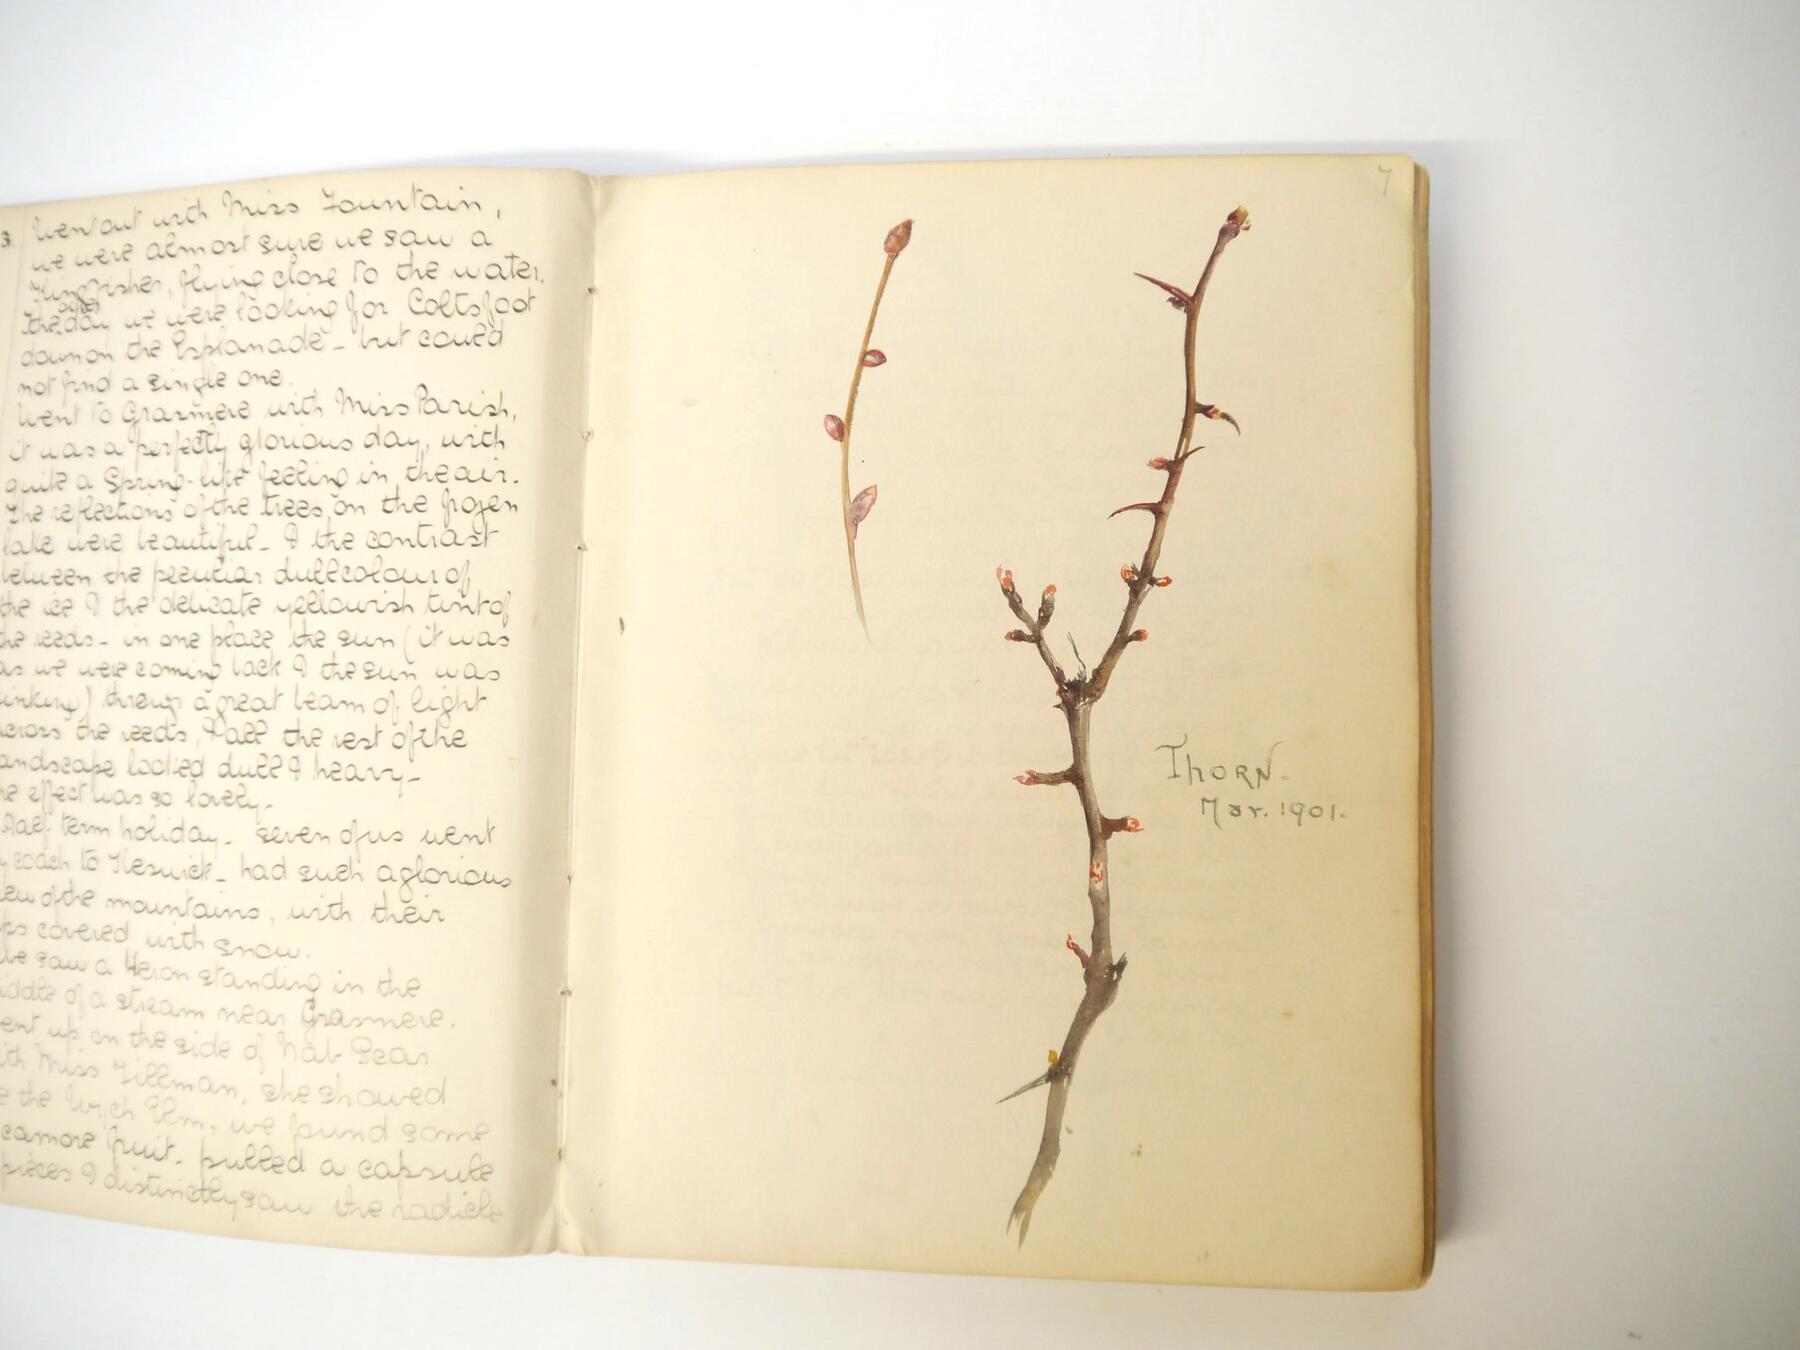 3 Went out with Miss Fountain,
we were almost sure we saw a
Kingfisher, flying close to the water.
The other day we were looking for Coltsfoot
down on the Esplanade - but could
not find a single one.
Went to Grasmere with Miss Parish,
it was a perfectly glorious day, with
quite a Spring-like feeling in the air.
The reflections of the trees, on the frozen
lake were beautiful - & the contrast
between the peculiar dull colour of
the ice & the delicate yellowish tint of
the reeds - in one place the sun (it was
as we were coming back & the sun was
inking) threw a great beam of light
across the reeds, & all the rest of the
andscape looked dull & heavy -
he effect was so lovely.
Half-term holiday - seven of us went
y coach to Keswick - had such a glorious
iew of the mountains, with their
ps covered with snow.
We saw a Heron standing in the
iddle of a stream near Grasmere.
ent up on the side of Nab Scar
ith Miss Tillman, she showed
e the Wych Elm, we found some
camore fruit - pulled a capsule
pieces & distinctly saw the radicle
7
Thorn.
Mar. 1901.